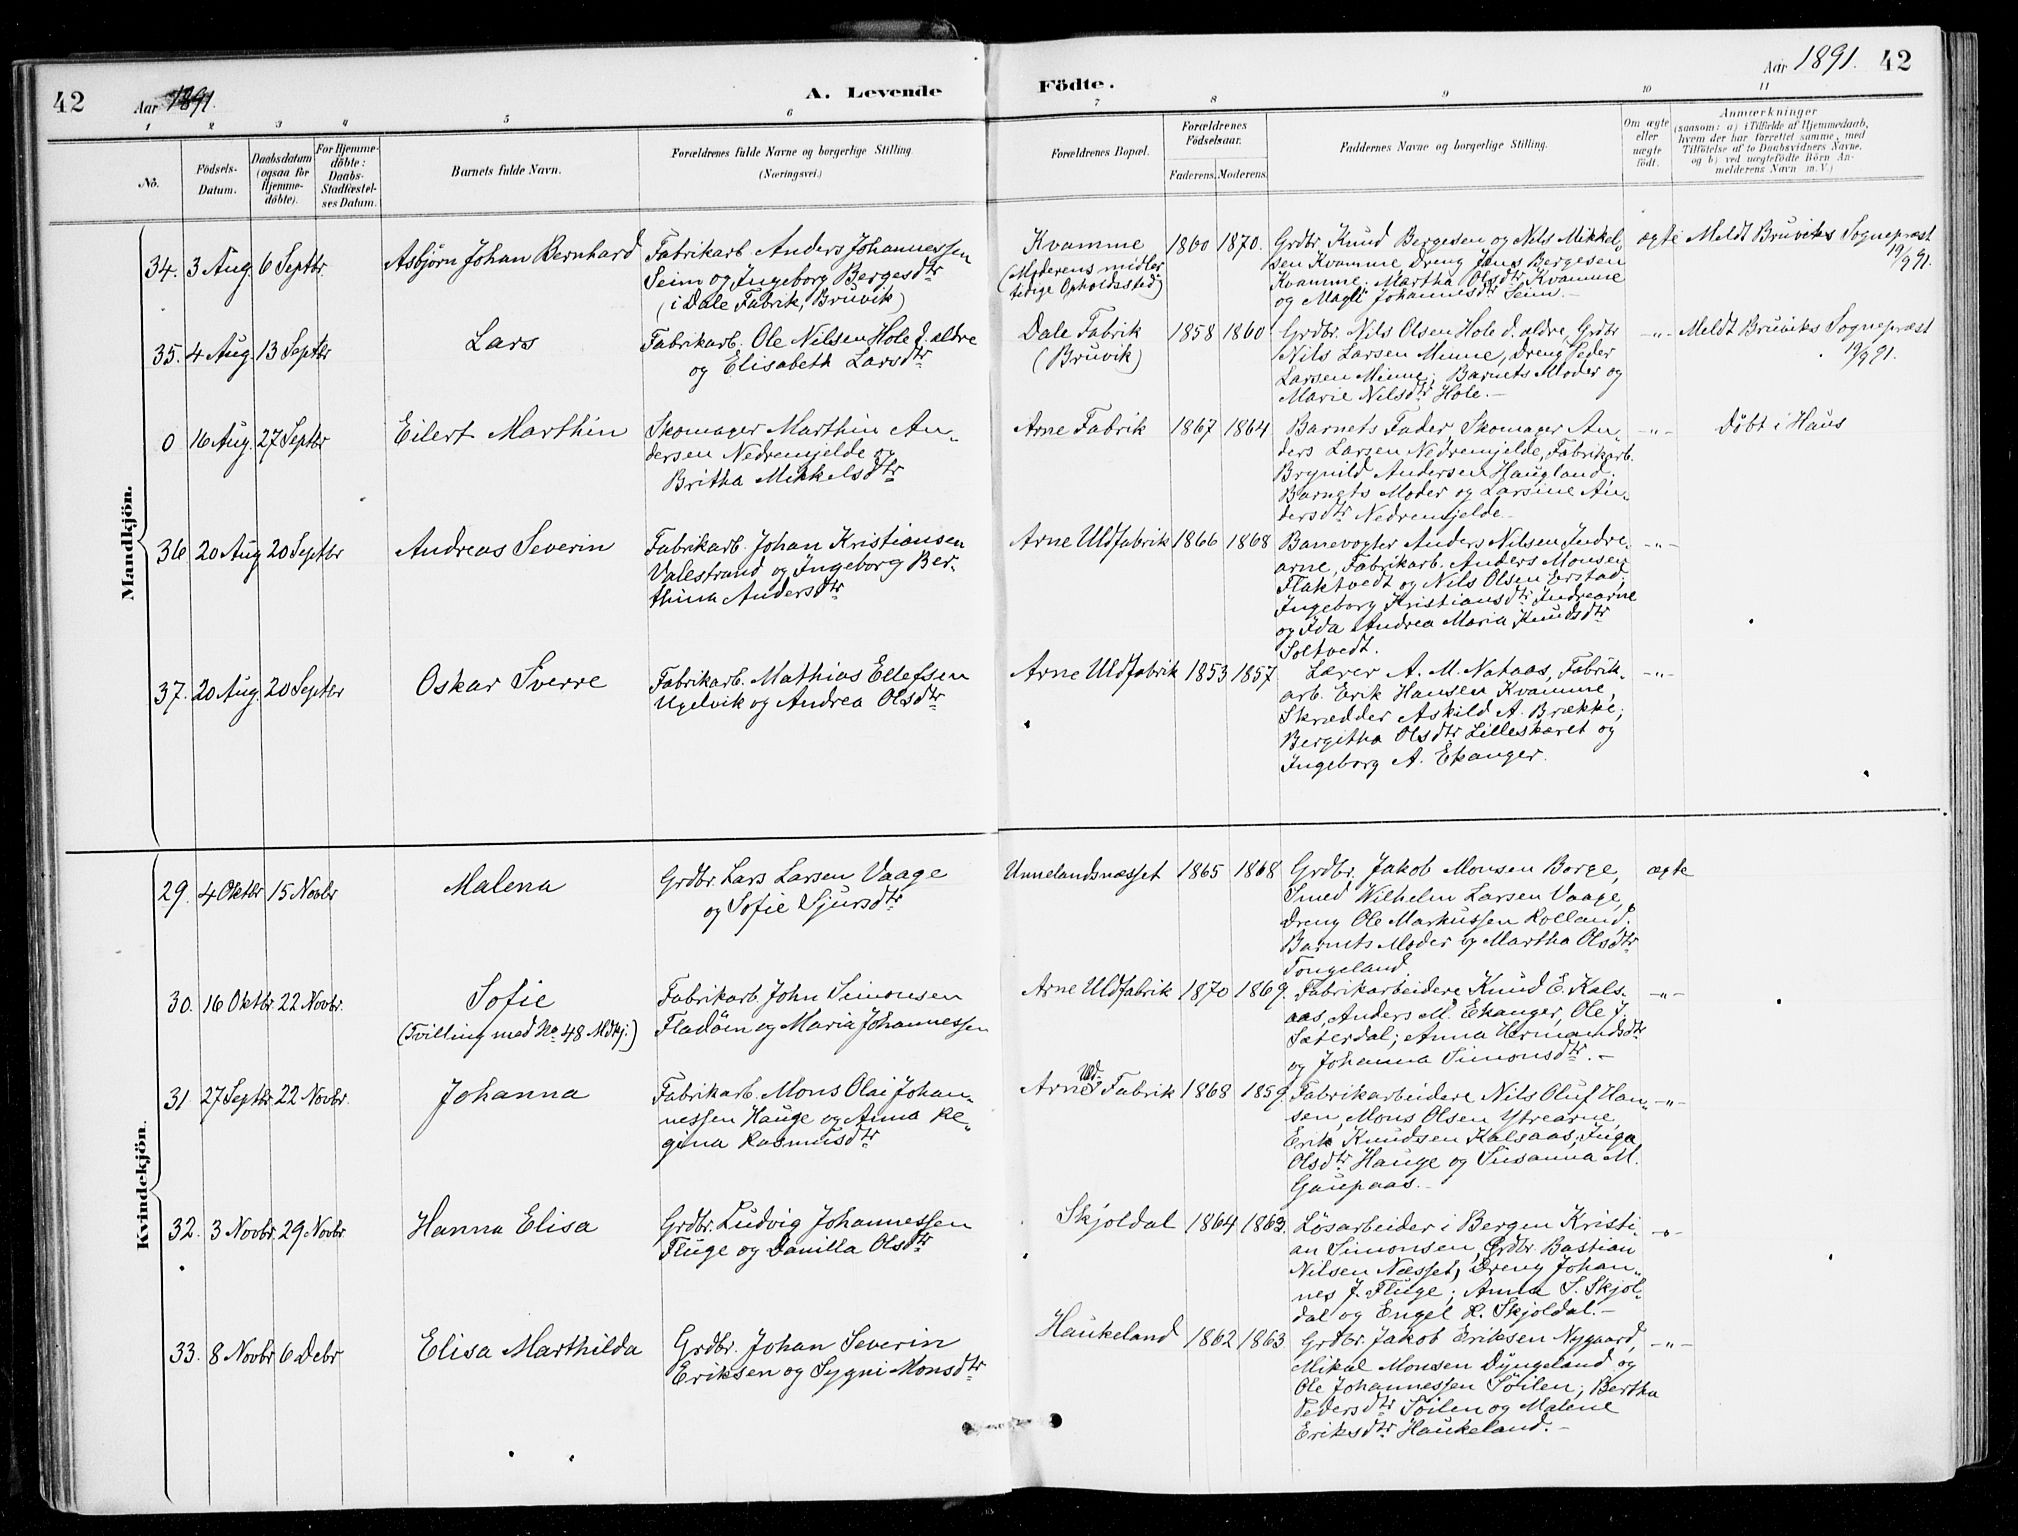 42 Aar 1891. A. Levende
Födte. Aar 1891. 42
1 2 3 4 5 6
7 8 9 10 11
No.
Födsels-
Datum.
Daabsdatum
(ogsaa for
Hjemme-
döbte).
For Hjemme-
döbte:
Daabs-
Stadfæstel-
ses Datum.
Barnets fulde Navn.
Forældrenes fulde Navne og borgerlige Stilling
(Næringsvei.)
Forældrenes Bopæl.
Forældrenes
Födselsaar.
Faderens. Moderens.
Faddernes Navne og borgerlige Stilling.
Om ægte
eller
uægte
födt.
Anmærkninger
(saasom: a) i Tilfælde af Hjemmedaab,
hvem der har forrettet samme, med
Tilföielse af to Daabsvidners Navne,
og b) ved uægtefödte Börn An-
melderens Navn m. V.)
Mandkjön.
34. 3 Aug. 6 Septbr. Asbjörn Johan Bernhard
Fabrikarb. Anders Johannessen
Seim og Ingeborg Bergesdtr
(i Dale Fabrik, Bruvik)
Kvamme
(Moderens midler
tidige Opholdssted)
1860 1870.
Grdbr. Knud Bergesen og Nils Mikkel-
sen Kvamme, Dreng Jens Bergesen
Kvamme; Martha Olsdtr Kvamme
og Magli Johannesdtr Seim.-
ægte
Meldt Bruviks Sognepræst
19/9 91.
35. 4 Aug. 13 Septbr Lars
Fabrikarb. Ole Nilsen Hole d. aldre
og Elisabeth Larsdtr
Dale Fabrik
(Bruvik)
1858 1860
Grdbr. Nils Olsen Hole d. aldre, Grdbr
Nils Larsen Minne, Dreng Peder
Larsen Minne; Barnets Moder og
Marie Nilsdtr Hole.-
-"-
Meldt Bruviks Sognepræst
19/9 91.
0 16 Aug. 27 Septbr Eilert Marthin
Skomager Marthin An-
dersen Nedremjelde og
Britha Mikkelsdtr
Arne Fabrik
1867 1864
Barnets Fader, Skomager An-
ders Larsen Nedremjelde, Fabrikarb.
Brynild Andersen Haugland;
Barnets Moder og Larsine An-
dersdtr Nedremjelde-
-"-
Döbt i Haus
36 20 Aug 20 Septbr Andreas Severin
Fabrikarb. Johan Kristiansen
Valestrand og Ingeborg Ber-
thina Andersdtr
Arne Uldfabrik
1866 1868
Banevogter Anders Nilsen Indre-
arne, Fabrikarb. Anders Monsen
Flaktvedt og Nils Olsen Erstad;
Ingeborg Kristiansdtr Indrearne
og Ida Andrea Maria Knudsdtr
Soltvedt.
-"-
37. 20 Aug. 20 Septbr Oskar Sverre
Fabrikarb. Mathias Ellefsen
Ugelvik og Andrea Olsdtr
Arne Uldfabrik
1853 1857
Lærer A. M. Nataas, Fabrik-
arb. Erik Hansen Kvamme,
Skrædder Askild A. Brække;
Bergitha Olsdtr Lilleskaret og
Ingeborg A. Ekanger.
-"-
Kvindekjön.
29. 4 Oktbr 15 Novbr Malena
Grdbr. Lars Larsen Vaage
og Sofie Sjursdtr
Unnelandsnæsset
1865 1868
Grdbr. Jakob Monsen Borge,
Smed Wilhelm Larsen Vaage,
Dreng Ole Markussen Rolland;
Barnets Moder og Martha Olsdtr
Tongeland.
ægte
30. 16 Oktbr. 22 Novbr. Sofie
(Tvilling med No 48 Mdkj.)
Fabrikarb. John Simonsen
Fladöin og Maria Johannessen
Arne Uldfabrik
1870 1869.
Fabrikarbeidere Knud E. Kals-
aas, Anders M. Ekanger, Ole J.
Sæterdal; Anna Hermandsdtr
og Johanna Simonsdtr.-
-"-
31 27 Septbr 22 Novbr. Johanna
Fabrikarb. Mons Olai Johan-
nessen Hauge og Anna Re-
gina Rasmusdtr
Arne Uld-Fabrik
1868 1859.
Fabrikarbeidere Nils Oluf Han-
sen, Mons Olsen Ytrearne,
Erik Knudsen Kalsaas; Inga
Olsdtr Hauge og Susanna M.
Gaupaas.-
-"-
32. 3 Novbr. 29 Novbr. Hanna Elisa
Grdbr. Ludvig Johannessen
Fluge og Danilla Olsdtr
Skjoldal
1864 1863.
Lösarbeider i Bergen Kristi-
an Simonsen, Grdbr. Bastian
Nilsen Næsset, Dreng Johan-
nes J. Fluge; Anna S. Skjol-
dal og Engel R. Skjoldal.-
-"-
33. 8 Novbr 6 Debr Elisa Marthilda
Grdbr. Johan Severin
Eriksen og Sygni Monsdtr
Haukeland
1862 1863
Grdbr. Jakob Eriksen Nygaard,
Mikal Monsen Dyngeland og
Ole Johannessen Söilen; Bertha
Pedersdtr Söilen og Malene
Eriksdtr Haukeland.-
-"-